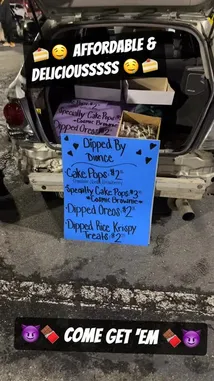 🍰😋 AFFORDABLE &
DELICIOUSSSSS 😋🍰
Specialty Cake Pops
*Cosmic Brownie*
Dipped Oreos $2
Dipped By
Cake Pops: $2
Specialty Cake Pops $3
*Cosmic Brownie*
Dipped Oreos: $2
Dipped Rice Krispy
Treats: $2
😈🍫 COME GET 'EM 😈🍫